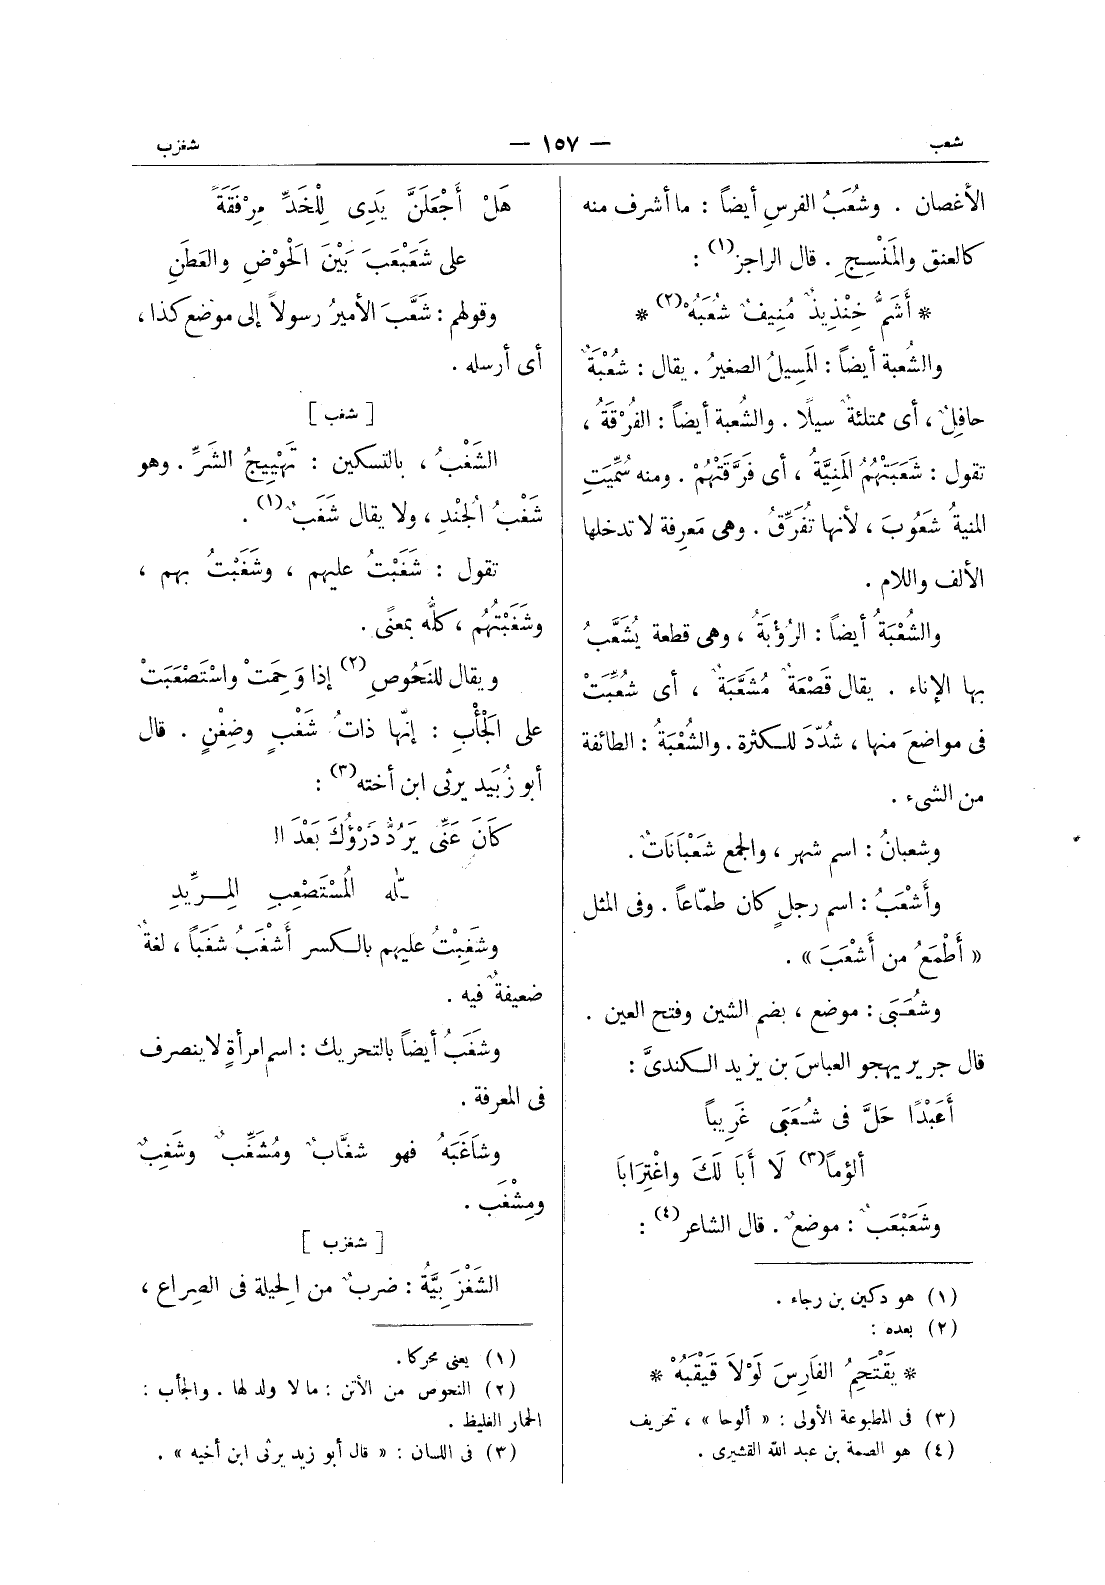 شعب
— ١٥٧ —
شغزب
الأغصان . وشُعَبُ الفرسِ أيضاً : ما أشرف منه
كالعنق والمَنْسِجِ . قال الراجز(١) :
* أَشَمُّ خِنْذِيذٌ مُنِيفٌ شُعَبُهْ(٢) *
والشُعبة أيضاً : المَسِيلُ الصغيرُ . يقال : شُعْبَةٌ
حافِلٌ ، أى ممتلئةٌ سيلًا . والشُعبة أيضاً : الفُرْقَةُ ،
تقول : شَعَبَتْهُمُ المَنِيَّةُ ، أى فَرَّقَتْهُمْ . ومنه سُمِّيَتِ
المنيةُ شَعُوبَ ، لأنها تُفَرِّقُ . وهى مَعرِفة لا تدخلها
الألف واللام .
والشُعْبَةُ أيضاً : الرُؤبَةُ ، وهى قطعة يُشَعَّبُ
بها الإناء . يقال قَصْعَةٌ مُشَعَّبَةٌ ، أى شُعِّبَتْ
فى مواضعَ منها ، شُدّدَ للكثرة . والشُعْبَةُ : الطائفة
من الشىء .
وشعبانُ : اسم شهر ، والجمع شَعْبَانَاتٌ .
وأَشْعَبُ : اسم رجلٍ كان طمّاعاً . وفى المثل
« أَطْمَعُ من أَشْعَبَ » .
وشُعَبَى : موضع ، بضم الشين وفتح العين .
قال جرير يهجو العباسَ بن يزيد الكندىَّ :
أَعَبْدًا حَلَّ فى شُعَبَى غَرِيباً
ألؤماً(٣) لَا أَبَا لَكَ واغْتِرَابَا
وشَعَبْعَبٌ : موضعٌ . قال الشاعر(٤) :
(١) هو دكين بن رجاء .
(٢) بعده :
* يَقْتَحِمُ الفَارِسَ لَوْلاَ قَيْقَبُهْ *
(٣) فى المطبوعة الأولى : « ألوحا » ، تحريف
(٤) هو الصمة بن عبد الله القشيرى .
هَلْ أَجْعَلَنَّ يَدِى لِلْخَدِّ مِرْفَقَةً
على شَعَبْعَبَ بَيْنَ الحَوْضِ والعَطَنِ
وقولهم : شَعَّبَ الأميرُ رسولاً إلى موضع كذا ،
أى أرسله .
[ شغب ]
الشَغْبُ ، بالتسكين : تَهْيِيجُ الشَرِّ . وهو
شَغْبُ الجُنْدِ ، ولا يقال شَغَبٌ(١) .
تقول : شَغَبْتُ عليهم ، وشَغَبْتُ بهم ،
وشَغَبْتُهُم ، كلُّه بمعنًى .
ويقال للنَحُوصِ(٢) إذا وَحِمَتْ واسْتَصْعَبَتْ
على الجَأْبِ : إنّها ذاتُ شَغْبٍ وضِغْنٍ . قال
أبو زُبَيد يرثى ابن أخته(٣) :
كَانَ عَنِّى يَرُدُّ دَرْؤُكَ بَعْدَ ال
ـلّه المُسْتَصْعِبِ المِرِّيدِ
وشَغِبْتُ عليهم بالكسر أَشْغَبُ شَغَباً ، لغةٌ
ضعيفةٌ فيه .
وشَغَبُ أيضاً بالتحريك : اسم امرأةٍ لا ينصرف
فى المعرفة .
وشاغَبَهُ فهو شغَّابٌ ومُشَغِّبٌ وشَغِبٌ
ومِشْغَب .
[ شغزب ]
الشَغْزَبِيَّةُ : ضربٌ من الحِيلة فى الصِراع ،
(١) يعنى محركا .
(٢) النحوص من الأتن : ما لا ولد لها . والجأب :
الحمار الغليظ .
(٣) فى اللسان : « قال أبو زيد يرثى ابن أخيه » .